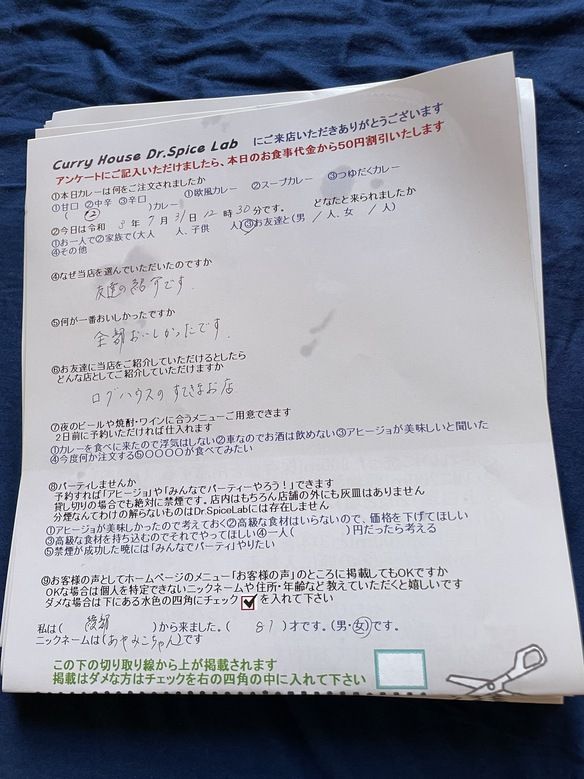 Curry House Dr.Spice Lab にご来店いただきありがとうございます
アンケートにご記入いただけましたら、本日のお食事代金から50円割引いたします
①本日カレーは何をご注文されましたか
①甘口 ②中辛 ③辛口 ①欧風カレー ②スープカレー ③つゆだくカレー
( ② )カレー
②今日は令和 3年 7月 31日 12時 30分です。 どなたと来られましたか
①お一人で②家族で(大人 人、子供 人)③お友達と(男 / 人、女 / 人)
④その他
④なぜ当店を選んでいただいたのですか
友達の紹介です.
⑤何が一番おいしかったですか
全部おいしかったです.
⑥お友達に当店をご紹介していただけるとしたら
どんな店としてご紹介していただけますか
ログハウスのすてきなお店
⑦夜のビールや焼酎・ワインに合うメニューご用意できます
2日前に予約いただければ仕入れます
①カレーを食べに来たので浮気はしない②車なのでお酒は飲めない③アヒージョが美味しいと聞いた
④今度何か注文する⑤〇〇〇〇が食べてみたい
⑧パーティしませんか
予約すれば「アヒージョ」や「みんなでパーティーやろう!」できます
貸し切りの場合でも絶対に禁煙です。店内はもちろん店舗の外にも灰皿はありません
分煙なんてわけの解らないものはDr.SpiceLabには存在しません
①アヒージョが美味しかったので考えておく②高級な食材はいらないので、価格を下げてほしい
③高級な食材を持ち込むのでそれでやってほしい④一人( )円だったら考える
⑤禁煙が成功した暁には「みんなでパーティ」やりたい
⑨お客様の声としてホームページのメニュー「お客様の声」のところに掲載してもOKですか
OKな場合は個人を特定できないニックネームや住所・年齢など教えていただくと嬉しいです
ダメな場合は下にある水色の四角にチェック を入れて下さい
私は( 綾部 )から来ました。( 81 )才です。(男・女)です。
ニックネームは(あやみこちゃん)です
この下の切り取り線から上が掲載されます
掲載はダメな方はチェックを右の四角の中に入れて下さい